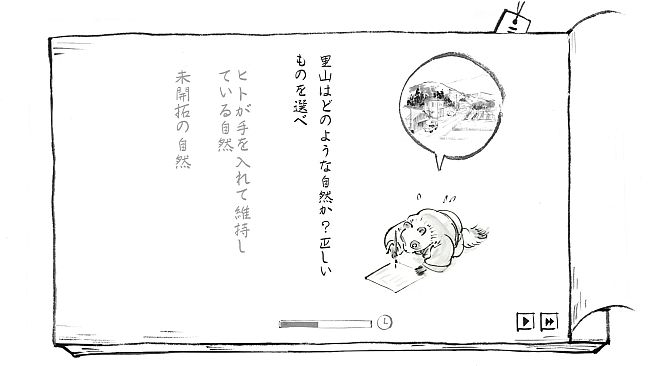 里山はどのような自然か？正しい
ものを選べ
ヒトが手を入れて維持し
ている自然
未開拓の自然